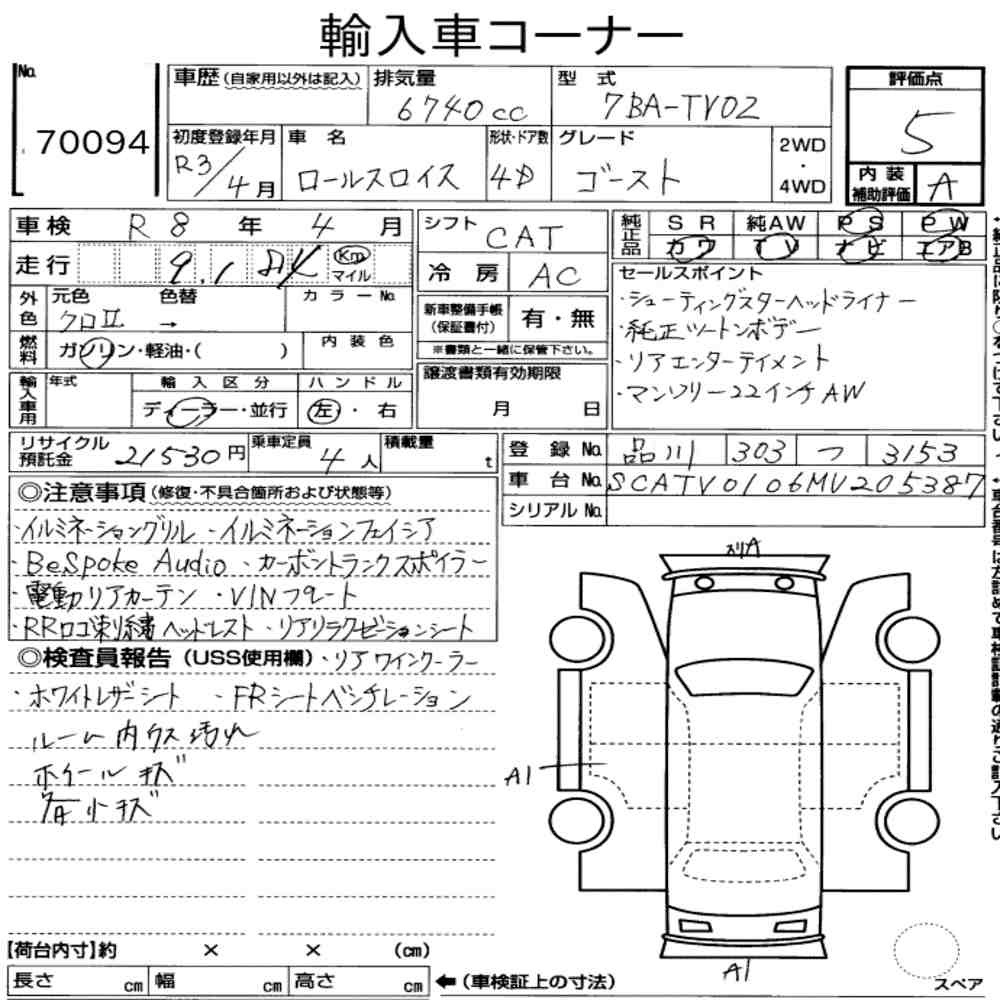 輸入車コーナー
No.
70094
車歴(自家用以外は記入)
排気量
6740cc
型 式
7BA-TV02
評価点
5
初度登録年月
R3/4月
車 名
ロールスロイス
形状・ドア数
4D
グレード
ゴースト
2WD
・
4WD
内 装
補助評価
A
車検 R 8 年 4 月
シフト
CAT
純正品
SR 純AW PS PW
カワ TV ナビ エアB
走行 9.1 千K
Km
マイル
冷 房 AC
セールスポイント
・シューティングスターヘッドライナー
・純正ツートンボデー
・リアエンターテイメント
・マンソリー22インチAW
外色
元色 色替 カラーNo.
クロII →
新車整備手帳
(保証書付)
有・無
※書類と一緒に保管下さい。
燃料
ガソリン・軽油・( )
内 装 色
譲渡書類有効期限
月 日
輸入車用
年式
輸 入 区 分
ディーラー・並行
ハ ン ド ル
左 ・ 右
リサイクル
預託金
21530円
乗車定員
4人
積載量
t
登 録 No. 品川 303 つ 3153
車 台 No. SCATV0106MU205387
シリアル No.
◎注意事項(修復・不具合箇所および状態等)
・イルミネーショングリル ・イルミネーションフェイシア
・BeSpoke Audio ・カーボントランクスポイラー
・電動リアカーテン ・VINプレート
・RRロゴ刺繍ヘッドレスト ・リアリラクゼーションシート
◎検査員報告(USS使用欄)・リアワインクーラー
・ホワイトレザーシート ・FRシートベンチレーション
ルーム内ウス汚れ
ホイールキズ
各小キズ
A1
A1
スペア
【荷台内寸】約 × × (cm)
長さ cm 幅 cm 高さ cm
←(車検証上の寸法)